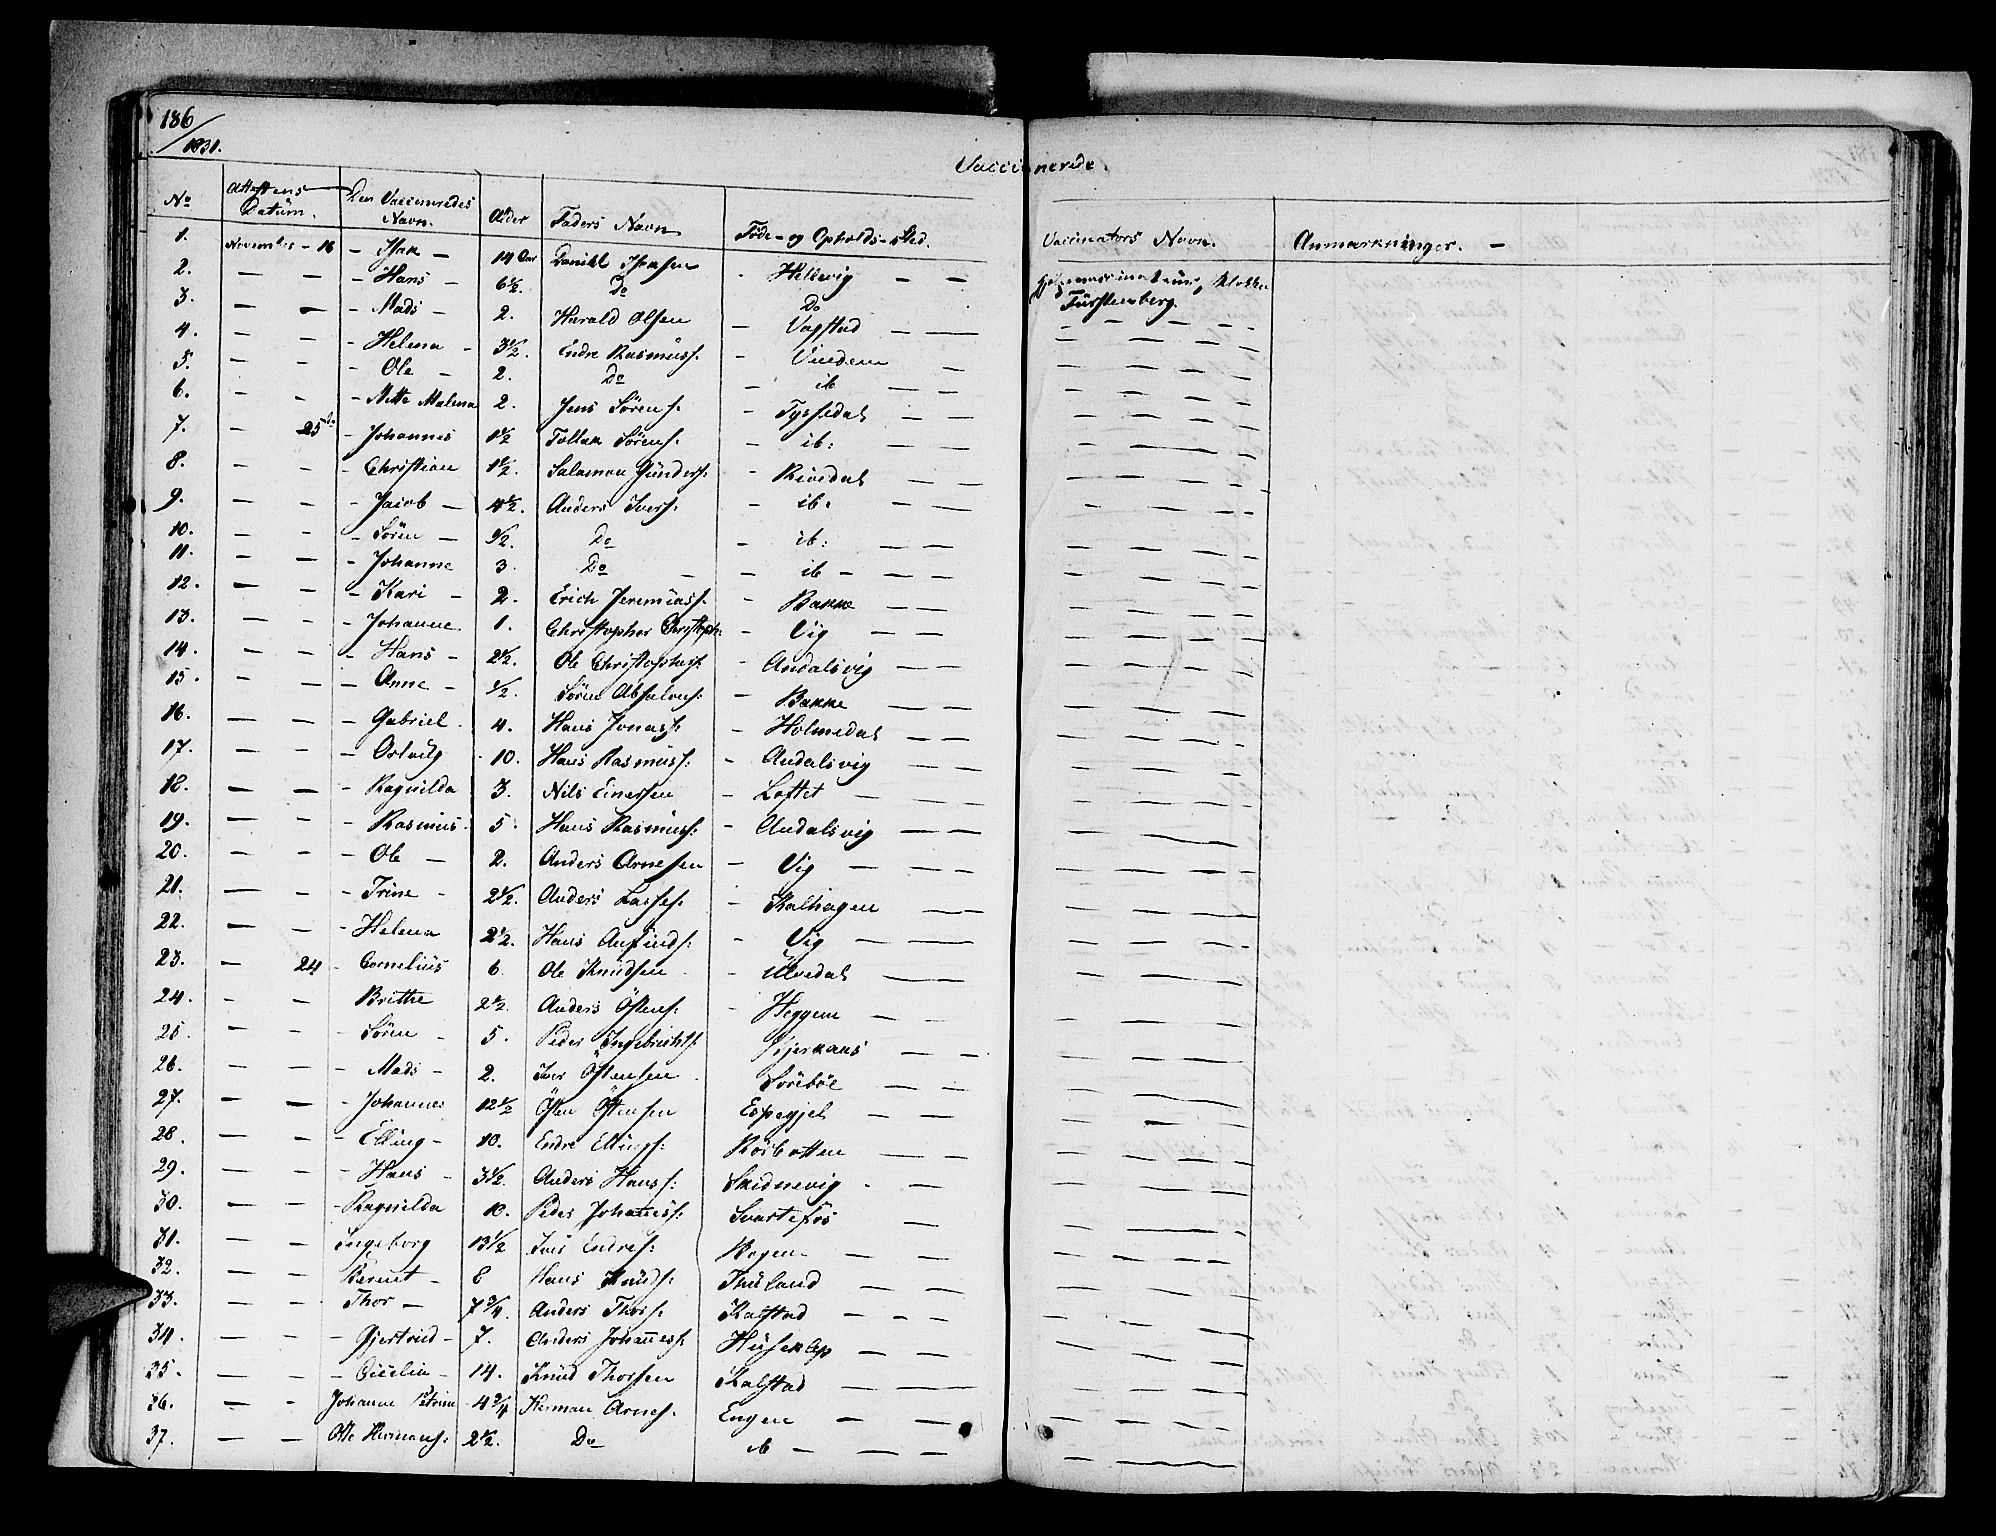 186
1831.
Vaccinerede.
No Attestens Datum. Den Vaccineredes Navn. Alder Faders Navn Föde- og Opholds-sted. Vaccinators Navn. Anmærkninger. -
1. November - 16 - Isak - 14 Aar Daniel Isaksen - Hellevig - - Hjelpevaccinateur, Klokker
2. - - - Hans - 6 1/2. Do Do Fürstenberg.
3. - - - Mads - 2. Harald Olsen - Vagstad - -
4. - - - Helena - 3 1/2. Endre Rasmuss: -
5. - - - Ole - 2. Do - ib - -
6. - - - Mette Malena 2. Jens Sörens: - Tyssedal - -
7. - 25de - Johannes 1 1/2 Tollak Sörens: - ib: - -
8. - - - Christian 1 1/2. Salamon Gunders: - Rivedal - -
9. - - - Jacob - 4 1/2. Anders Ivers: - ib. - -
10. - - - Sören - 1/2. Do - ib: - -
11. - - - Johanne 3. Do - - ib - - -
12. - - - Kari - 2. Erich Jeremiass: - Bakke - -
13. - - - Johanne 1. Christopher Christoph: - Vig - -
14. - - - Hans - 2 1/2. Ole Christophers: - Aadalsvig - -
15. - - - Anne - 1/2 Sören Absalons: - Bakke - -
16. - - - Gabriel. 4. Hans Jonass: - Holmedal - -
17. - - - 10. Hans Rasmuss: - Aadalsvig - -
18. - - - Ragnilda 3. Nils Einersen - Loftet - -
19. - - - Rasmus. 5. Hans Rasmuss: - Aadalsvig - -
20. - - - Ole - 2. Anders Arnesen - Vig - -
21. - - - Trine - 2 1/2. Anders Lasses. - Kalhagen - -
22. - - - Helena 2 1/2. Hans Anfinds: - Vig - -
23. - 24 - Cornelius 6. Ole Knudsen - Ulvedal - -
24. - - Brithe 2 1/2. Anders Östens: - Heggem - -
25. - - - Sören - 5. Peder Ingebricts: - -
26. - - - Mads - 2. Iver Östensen. Söreböe - -
27. - - - Johannes 12 1/2 Östen Östensen Espegjel - -
28. - - - Elling - 10. Endre Ellings: Rösbotten - -
29. - - - Hans - 3 1/2. Anders Hanss: Skidnevig - -
30. - - - Ragnilda 10. Peder Johaness: Svartefos -
31. - - Ingeborg 13 1/2 Iver Endres: Bogen - -
32. - - Berent - 8 Hans Knuds: - -
33. - - Thor - 7 3/4. Anders Thors: Kalstad - - -
34. - - - Gjertrud - 7. Anders Johanness: - - -
35. - - - Cicelia - 14. Knud Thorsen Kalstad - -
36. - - Johanne Petrine 4 3/4 Herman Arnes: Engen - -
37. - - Ole Hermans: 2 1/2. Do ib - - -